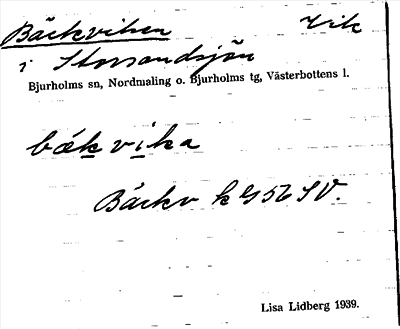 Bäckviken Vik
i Storsandsjön
Bjurholms sn, Nordmaling o. Bjurholms tg, Västerbottens l.
bǽk vika
Bäckv k G 56 SV.
Lisa Lidberg 1939.